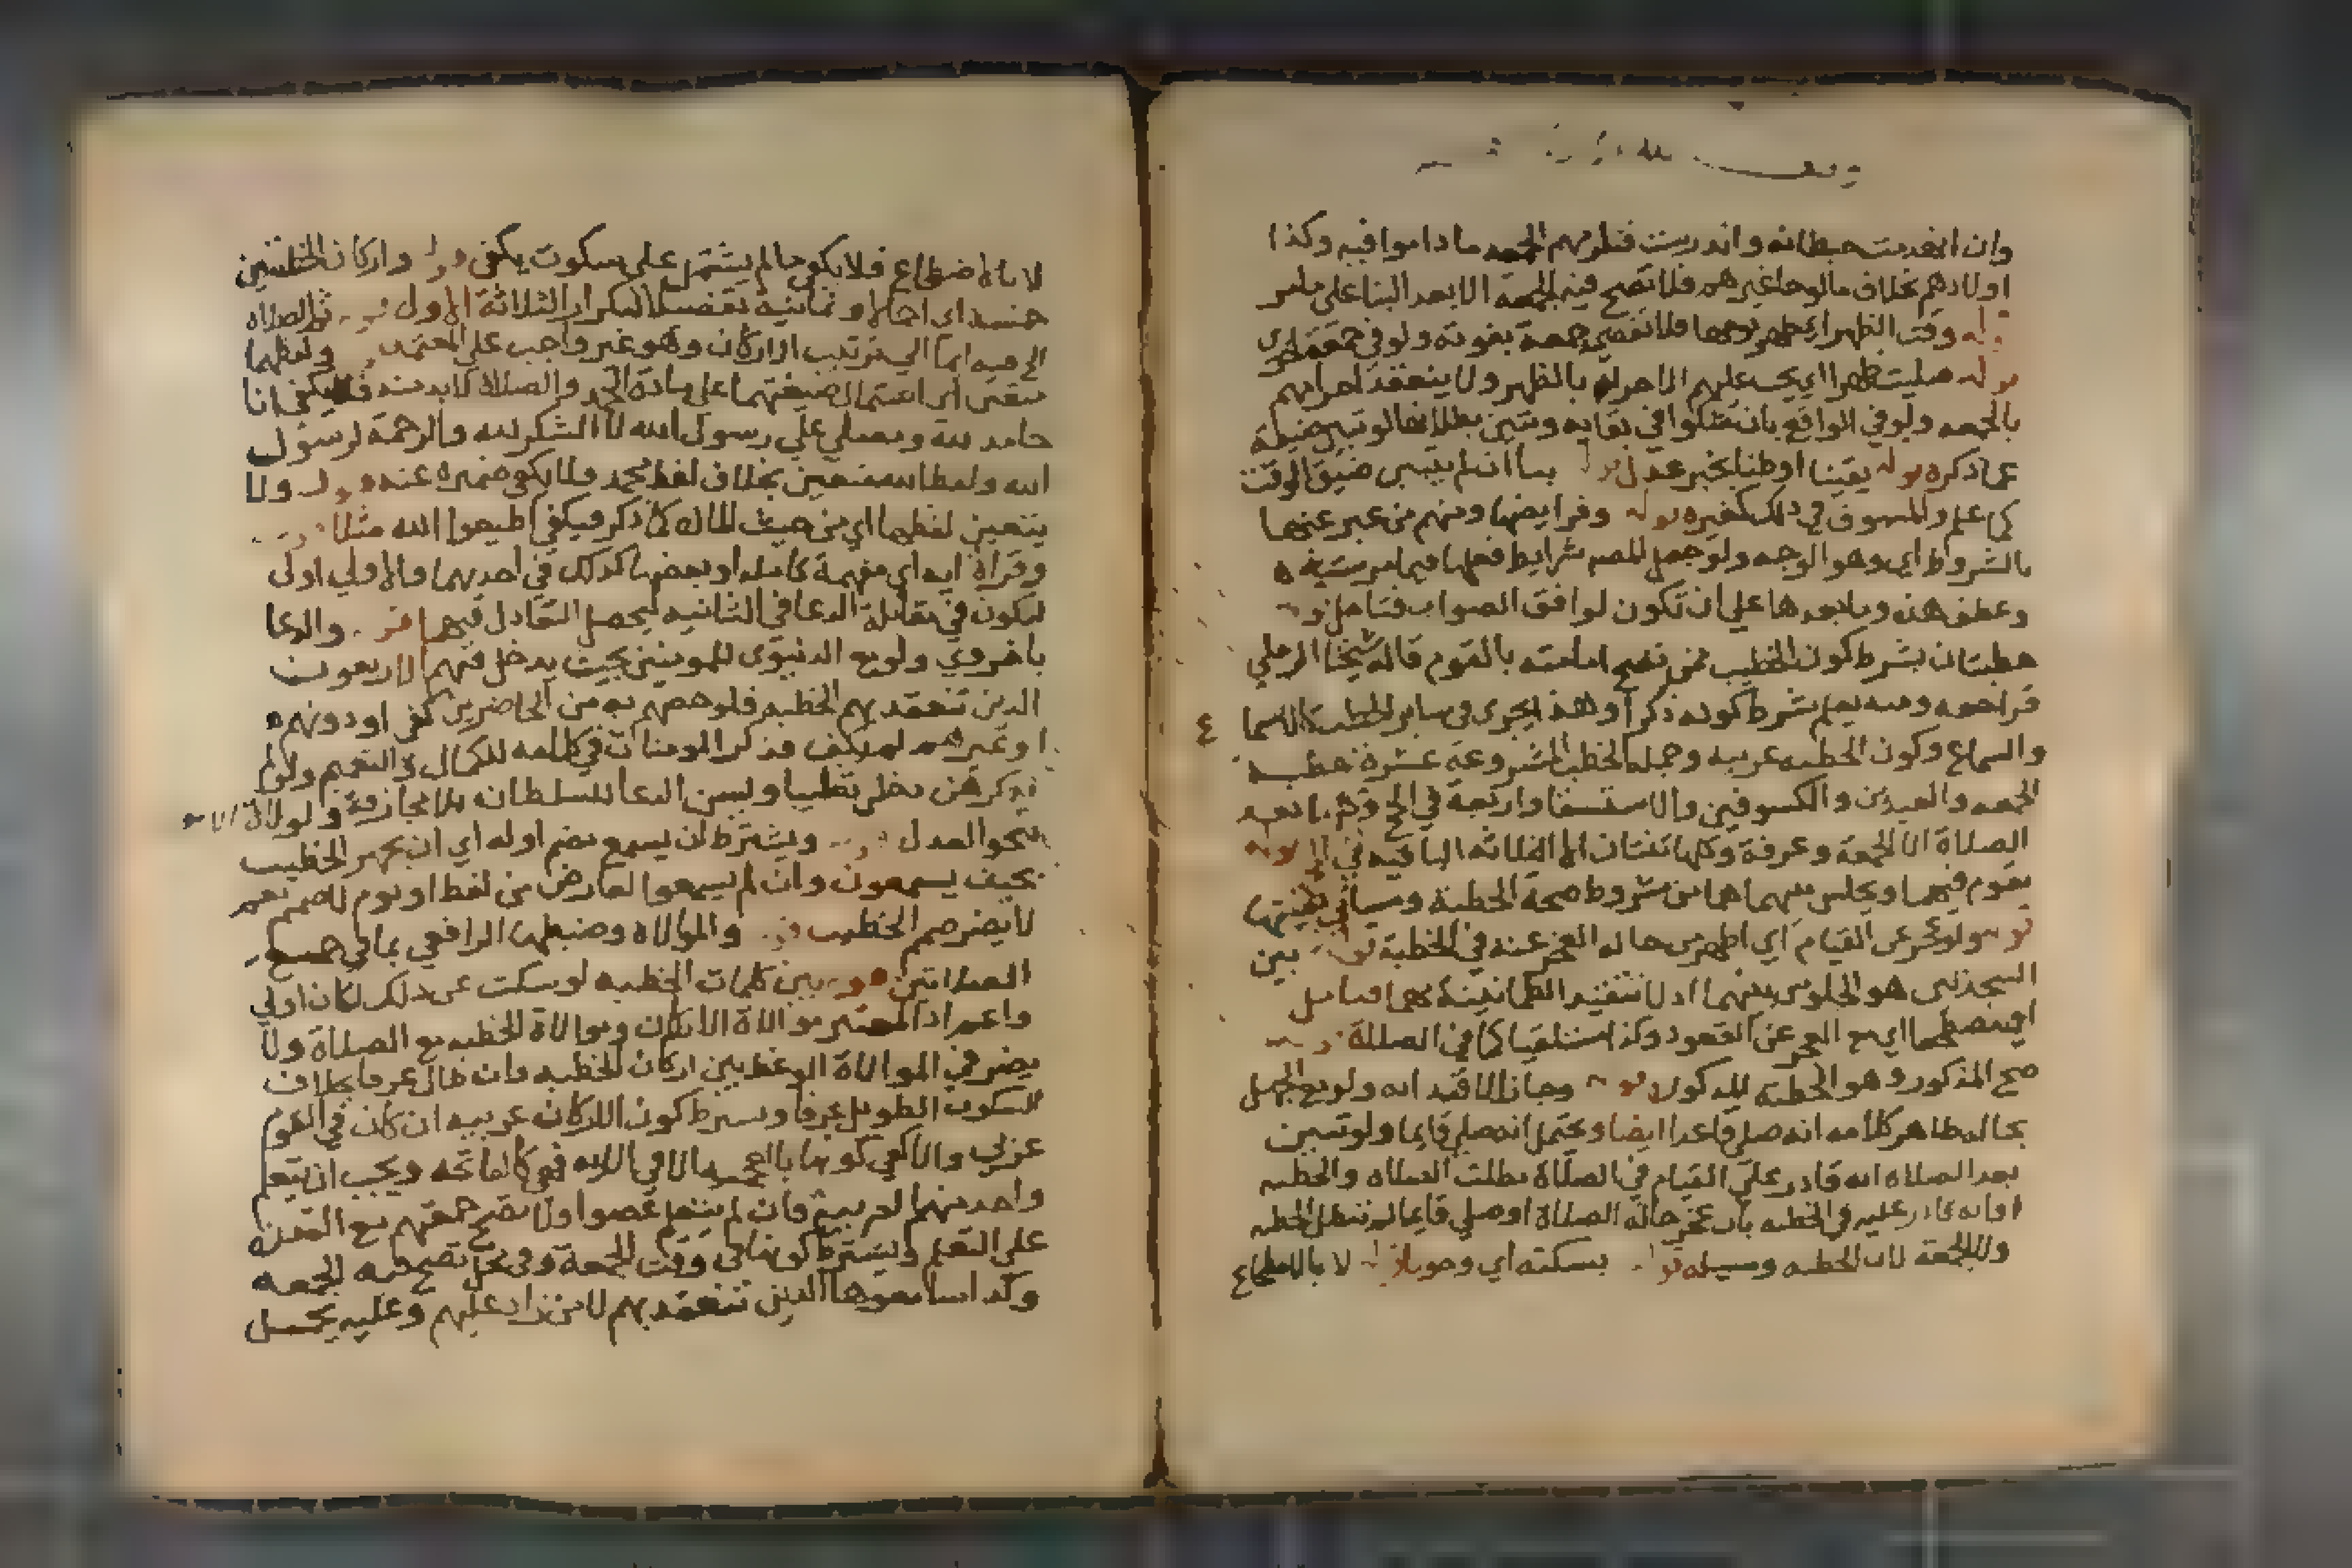 وقف لله
وان انهدمت حيطانه واندرست فتلزمهم الجمعه ما داموا فيه وكذا
اولادهم بخلاف مالوجا غيرهم فلا تصح فيه الجمعة الا بعد البنا على مامر
قوله وقت الظهر اي ظهر يومها فلا تقضى جمعة بفوته ولو في جمعة اخرى
قوله صليت ظهرا اي يجب عليهم الاحرام بالظهر ولا ينعقد احرامهم
بالجمعه ولو في الواقع بان شكوا في بقايه وتبين بطلانها لو تبين ضيقه
عما ذكره قوله يقينا اوظنا بخبر عدل قوله بنا ان لم يتبين ضيق الوقت
كما علم والمسبوق في ذلك كغيره قوله وفرايضها ومنهم من عبر عنها
بالشروط اي وهو الوجه ولو جعل المصـ شرايط فعلها فيما مر ستة
وعطف هذه وما بعدها على ان تكون لوافق الصواب فتامل قوله
خطبتان بشرط كون الخطيب ممن تصح امامته بالقوم قاله شيخنا الرملي
فراجعه ومنه يعلم شرط كونه ذكرا وهذا يجري في ساير الخطب كالاسما
والسماع وكون الخطبه عربيه وجملة الخطب المشروعة عشرة خطبة
الجمعه والعيدين والكسوفين والاستسقا واربعة في الحج وكلها بعد
الصلاة الا الجمعة وعرفة وكلها ثنتان الا الثلاثه الباقيه في الحج قوله
يقوم فيهما ويجلس بينهما هما من شروط صحة الخطبة وسياتي بقيتها
قوله ولو عجز عن القيام اي اظهر من حاله العجز عنه في الخطبة قوله بين
السجدتين هو الجلوس بينهما اذ لا تتقيد الطمانينة بهما فتامل
او مضطجعا اي مع العجز عن القعود وكذا مستلقيا كما في الصلاة قوله
صح المذكور وهو الخطبه للمذكور قوله وجاز الاقتدا به ولو مع الجهل
بحاله ظاهر كلامه انه صلى قاعدا ايضا ويحتمل انه صلى قايما ولو تبين
بعد الصلاه انه قادر على القيام في الصلاة بطلت الصلاه والخطبه
او انه قادر عليه في الخطبه بان عجز حالة الصلاة او صلى قايما لم تبطل الخطبه
ولا الجمعة لان الخطبه وسيله قوله بسكتة اي وجوبا قوله لا بالاضطجاع
٤
لا باضطجاع فلا يكفي ما لم يشتمل على سكوت يكفي قوله واركان الخطبتين
خمسه اي اجمالا وثمانية تفصيلا لتكرار الثلاثة الاول قوله ثم الصلاه
الخ فيه ايما الى ترتيب الاركان وهو غير واجب على المعتمد قوله ولفظهما
متعين اي اشتمال صيغتهما على مادة الحمد والصلاة لا بد منه فيكفي انا
حامد لله ونصلي على رسول الله لا الشكر لله والرحمة لرسول
الله ولفظ الله متعين بخلاف لفظ محمد فلا يكفي ضميره عنه قوله ولا
يتعين لفظها اي من حيث المادة كما ذكر فيكفي اطيعوا الله مثلا قوله
وقراة ايه اي مفهمة كاملة او بعضها كذلك في احديهما والاولى اولى
لتكون في مقابلة الدعا في الثانيه ليحصل التعادل فيهما قوله والدعا
باخروي ولو مع الدنيوي للمومنين بحيث يدخل فيهم الاربعون
الذين تنعقد بهم الخطبه فلو خصهم به من الحاضرين كفى او دونهم
او غيرهم لم يكف فذكر المومنات في كلامه للكمال والتعميم ولو لم
يذكرهن دخلن تغليبا ويسن الدعا للسلطان بلا مجازفة ولولاة الا
بنحو العدل قوله ويشترط ان يسمع بضم اوله اي ان يجهر الخطيب
بحيث يسمعون وان لم يسمعوا لعارض من لغط او نوم لا صمم نعم
لا يضر صمم الخطيب قوله والموالاة وضبطها الرافعي بما في جمع
الصلاتين قوله بين كلمات الخطبه لو سكت عن ذلك لكان اولى
واعم اذ المعتبر موالاة الاركان وموالاة الخطبه مع الصلاة ولا
يضر في الموالاة الوعظ بين اركان الخطبه وان طال عرفا بخلاف
السكوت الطويل عرفا ويشترط كون الاركان عربيه ان كان في القوم
عربي والا كفى كونها بالعجمية الا في الايه فهي كالفاتحه ويجب ان يتعلم
واحد منهم العربية فان لم يتعلم عصوا ولا تصح جمعتهم مع القدرة
على التعلم ويشترط كونها في وقت الجمعة وفي محل تصح فيه الجمعه
وكذا سامعوها الذين تنعقد بهم لا من زاد عليهم وعليه يحمل